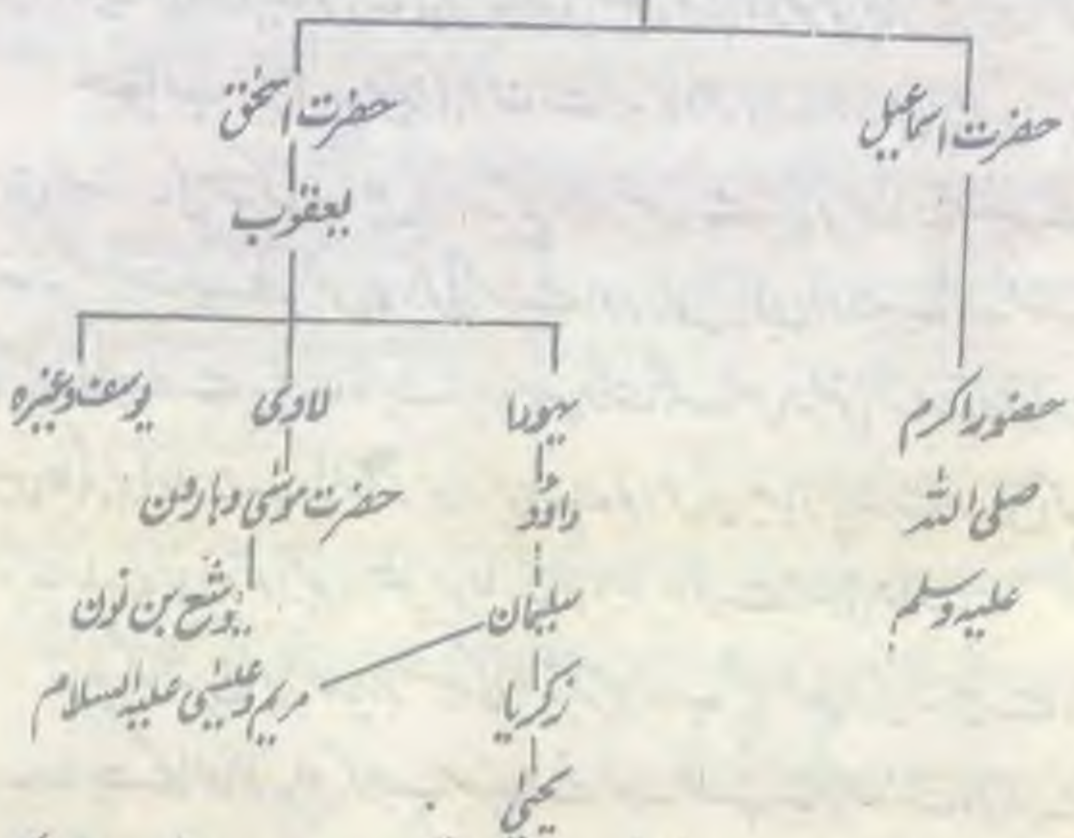 حضرت اسماعیل
حضرت اسحٰق
یعقوب
حضور اکرم
صلی اللہ
علیہ وسلم
یہودا
لاوی
یوسف وغیرہ
داؤد
حضرت موسٰی وہارون
سلیمان
یوشع بن نون
زکریا
مریم وعیسٰی علیہ السلام
یحیٰی